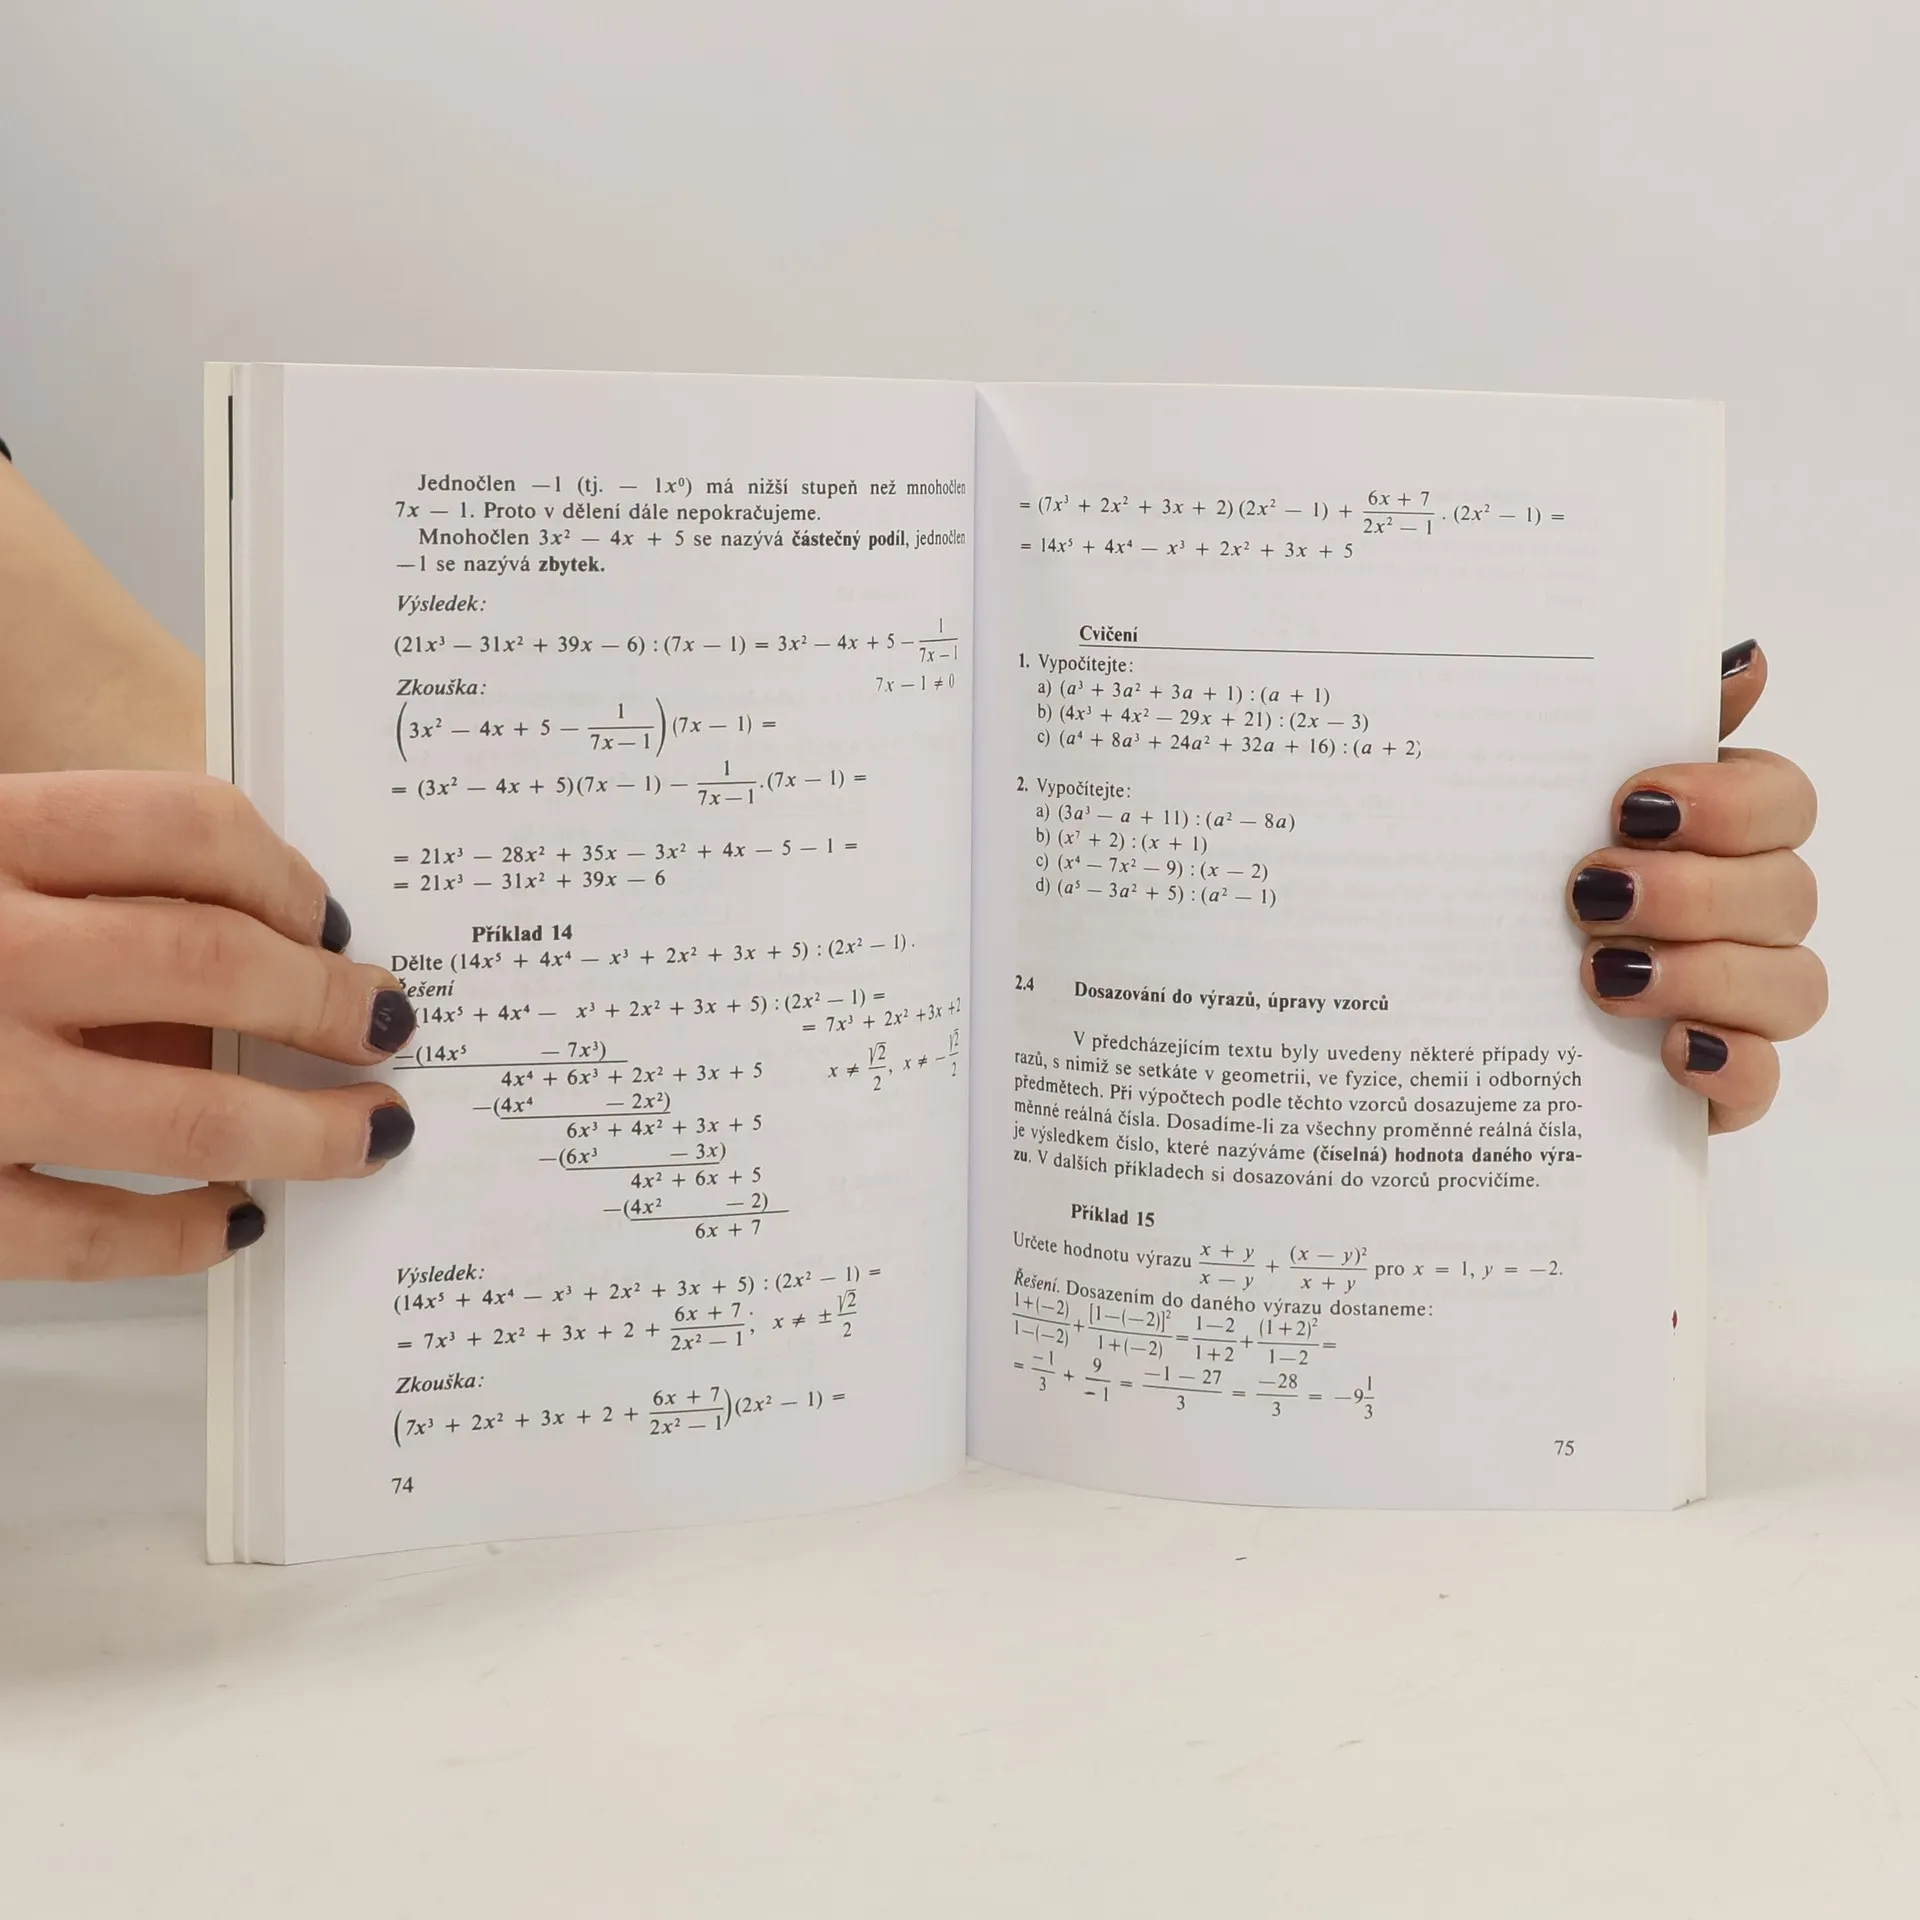 Jednočlen —1 (tj. — 1x⁰) má nižší stupeň než mnohočlen
7x — 1. Proto v dělení dále nepokračujeme.
Mnohočlen 3x² — 4x + 5 se nazývá částečný podíl, jednočlen
—1 se nazývá zbytek.
Výsledek:
(21x³ — 31x² + 39x — 6) : (7x — 1) = 3x² — 4x + 5 — 1/(7x — 1)
Zkouška: 7x — 1 ≠ 0
(3x² — 4x + 5 — 1/(7x — 1)) (7x — 1) =
= (3x² — 4x + 5)(7x — 1) — 1/(7x — 1) . (7x — 1) =
= 21x³ — 28x² + 35x — 3x² + 4x — 5 — 1 =
= 21x³ — 31x² + 39x — 6
Příklad 14
Dělte (14x⁵ + 4x⁴ — x³ + 2x² + 3x + 5) : (2x² — 1).
ešení
(14x⁵ + 4x⁴ — x³ + 2x² + 3x + 5) : (2x² — 1) =
= 7x³ + 2x² + 3x + 2
—(14x⁵ — 7x³)
4x⁴ + 6x³ + 2x² + 3x + 5 x ≠ √2/2, x ≠ —√2/2
—(4x⁴ — 2x²)
6x³ + 4x² + 3x + 5
—(6x³ — 3x)
4x² + 6x + 5
—(4x² — 2)
6x + 7
Výsledek:
(14x⁵ + 4x⁴ — x³ + 2x² + 3x + 5) : (2x² — 1) =
= 7x³ + 2x² + 3x + 2 + (6x + 7)/(2x² — 1); x ≠ ±√2/2
Zkouška:
(7x³ + 2x² + 3x + 2 + (6x + 7)/(2x² — 1)) (2x² — 1) =
74
= (7x³ + 2x² + 3x + 2) (2x² — 1) + (6x + 7)/(2x² — 1) . (2x² — 1) =
= 14x⁵ + 4x⁴ — x³ + 2x² + 3x + 5
Cvičení
1. Vypočítejte:
a) (a³ + 3a² + 3a + 1) : (a + 1)
b) (4x³ + 4x² — 29x + 21) : (2x — 3)
c) (a⁴ + 8a³ + 24a² + 32a + 16) : (a + 2)
2. Vypočítejte:
a) (3a³ — a + 11) : (a² — 8a)
b) (x⁷ + 2) : (x + 1)
c) (x⁴ — 7x² — 9) : (x — 2)
d) (a⁵ — 3a² + 5) : (a² — 1)
2.4 Dosazování do výrazů, úpravy vzorců
V předcházejícím textu byly uvedeny některé případy vý-
razů, s nimiž se setkáte v geometrii, ve fyzice, chemii i odborných
předmětech. Při výpočtech podle těchto vzorců dosazujeme za pro-
měnné reálná čísla. Dosadíme-li za všechny proměnné reálná čísla,
je výsledkem číslo, které nazýváme (číselná) hodnota daného výra-
zu. V dalších příkladech si dosazování do vzorců procvičíme.
Příklad 15
Určete hodnotu výrazu (x + y)/(x — y) + (x — y)²/(x + y) pro x = 1, y = —2.
Řešení. Dosazením do daného výrazu dostaneme:
(1+(—2))/(1—(—2)) + [1—(—2)]²/(1+(—2)) = (1—2)/(1+2) + (1+2)²/(1—2) =
= —1/3 + 9/—1 = (—1 — 27)/3 = —28/3 = —9 1/3
75